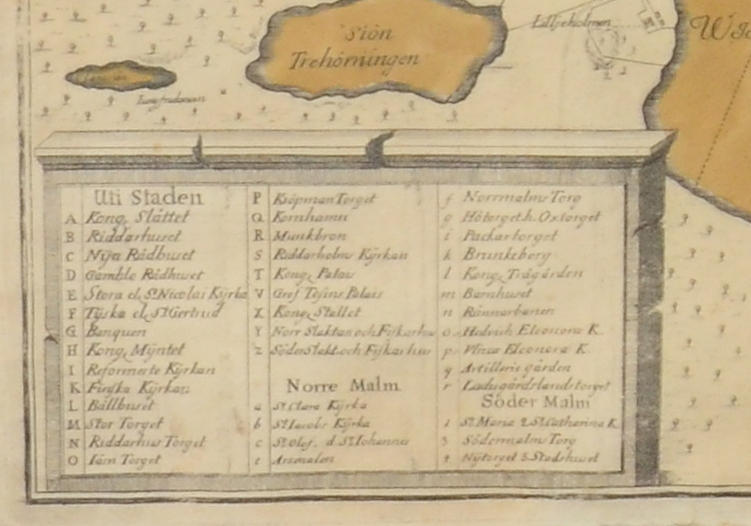 Siön
Trehörningen
Liljeholmen
Uti Staden
A Kong. Slåttet
B Riddarhuset
C Nÿa Rådhuset
D Gamble Rådhuset
E Stora el. St Nicolai Kÿrka
F Tÿska el. St Gertrud
G Banquen
H Kong. Mÿntet
I Reformerte Kÿrkan
K Finska Kÿrkan
L Bållhuset
M Stor Torget
N Riddarhus Torget
O Iärn Torget
P Kiöpman Torget
Q Kornhamn
R Munkbron
S Riddarholms Kÿrkan
T Kong. Palais
V Gref Tesins Palais
X Kong. Stallet
Y Norr Slaktar och Fiskarhus
Z Söder Slakt. och Fiskarhus
Norre Malm
a St Clara Kÿrka
b St Iacobs Kÿrka
c St Olof. d. St Iohannes
e Arsenalen
f Norrmalms Torg
g Hötorget h. Oxtorget
i Packartorget
k Brunkeberg
l Kong. Trägården
m Barnhuset
n Rännarbanen
o Hedvich Eleonora K.
p Vlrica Eleonora K.
q Artillerie gården
r Ladugårdslandstorget
Söder Malm
1 St Maria 2 St Catharina K.
3 Södermalms Torg
4 Nÿtorget 5 Stadshuset